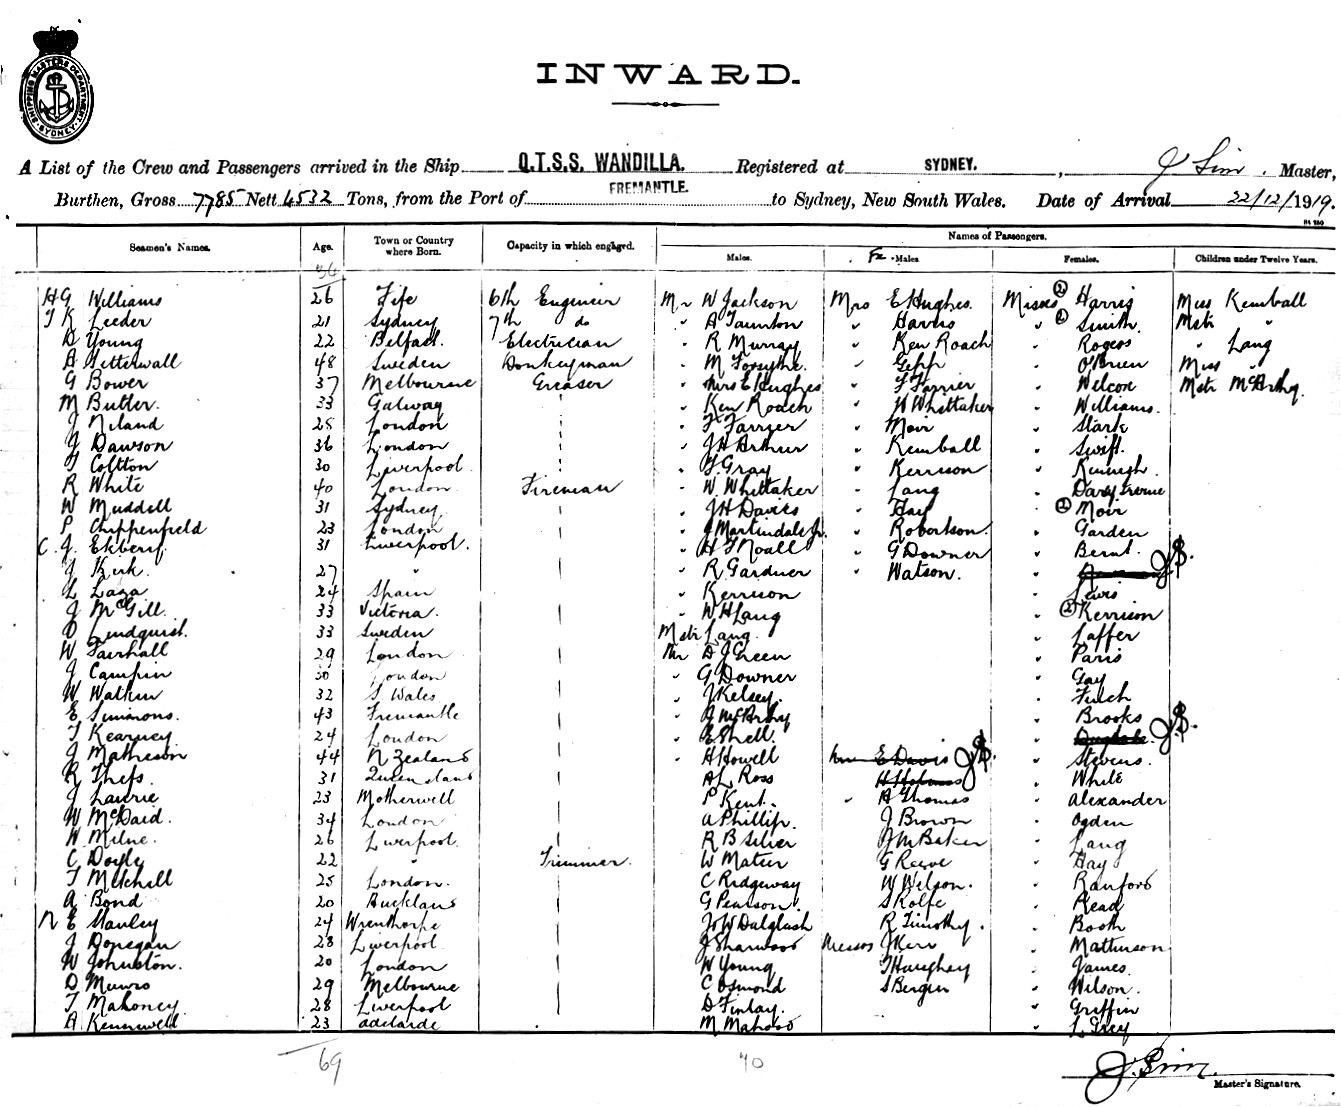 SHIPPING MASTERS DEPARTMENT SYDNEY
INWARD.
A List of the Crew and Passengers arrived in the Ship Q.T.S.S. WANDILLA. Registered at SYDNEY. , J Sim . Master,
Burthen, Gross 7785 Nett 4532 Tons, from the Port of FREMANTLE. to Sydney, New South Wales. Date of Arrival 22/12/1919.
Seamen's Names. Age. Town or Country where Born. Capacity in which engaged. Names of Passengers.
Males. Males Females. Children under Twelve Years.
36
H G Williams 26 Fife 6th Engineer Mr W Jackson Mrs E Hughes. Misses 2 Harris Miss Kemball
T K Leeder 21 Sydney 7th do " A Taunton " Harris " 2 Smith. Mstr "
D Young 22 Belfast. Electrician " R Murray " Ken Roach " Rogers " Lang
A Setterwall 48 Sweden Donkeyman " M Forsythe. " Gepp " O'Brien Miss "
G Bower 37 Melbourne Greaser " Mrs E Hughes " F Farrier " Wilcox Mstr McArthy.
M Butler. 33 Galway " Ken Roach " W Whittaker " Williams.
J Niland 25 London " F Farrier " Moir " Stark
J Dawson 36 London " J H Arthur " Kemball " Swift.
T Coltton 30 Liverpool. " F. Gray " Kerrison "
R White 40 London. Fireman " W. Whittaker " Lang "
W Muddell 31 Sydney. " J H Davies " Hay " 2 Moir
P Chippenfield 23 London " J Martindale Jr. " Robertson. " Garden
C. J. 31 Liverpool. " H T Noall " G Downer " Bernt. J.S.
J Kirk. 27 " " R. Gardner " Watson.
L Laza 24 Spain " Kerrison " Lewis
J McGill. 33 Victoria. " W H Lang " 2 Kerrison
O Lindquist. 33 Sweden Mstr Lang. " Laffer
W Fairhall 29 London Mr D J Green " Paris
J Campin 30 London " G Downer " Gay
W Watkin 32 S. Wales " J Kelsey. " Finch
E Simmons. 43 Fremantle " J McArthy " Brooks
T Kearney 24 London " E Shell. " J.S.
J Matheson 44 N Zealand " H Howell E Davis J.S. " Stevens.
R 31 Queensland A L Ross H Holmes " White
J Laurie 23 Motherwell P Kent. " A Thomas " Alexander
W McDaid. 34 London A Phillip. J Brown " Ogden
W Milne. 26 Liverpool. R B Silver J M Baker " Lang
C Doyle 22 " Trimmer. W Mateer G Reeve " Hay
T Mitchell 25 London. C Ridgeway W Wilson. " Ranford
A Bond 20 Auckland G Pearson. S Rolfe " Read
N E Stanley 24 Wrenthorpe J W Dalglish R Timothy. " Booth
J Donegan 28 Liverpool J Sharwood Messrs J Kerr " Mathieson
W Johnston. 20 London W Young T Haughey " James.
D Munro 29 Melbourne C Osmond S Bergin " Wilson.
T Mahoney 28 Liverpool D Finlay. " Griffin
A Kennewell 23 Adelaide M Mahood " L Grey
69 40
J. Sim.
Master's Signature.